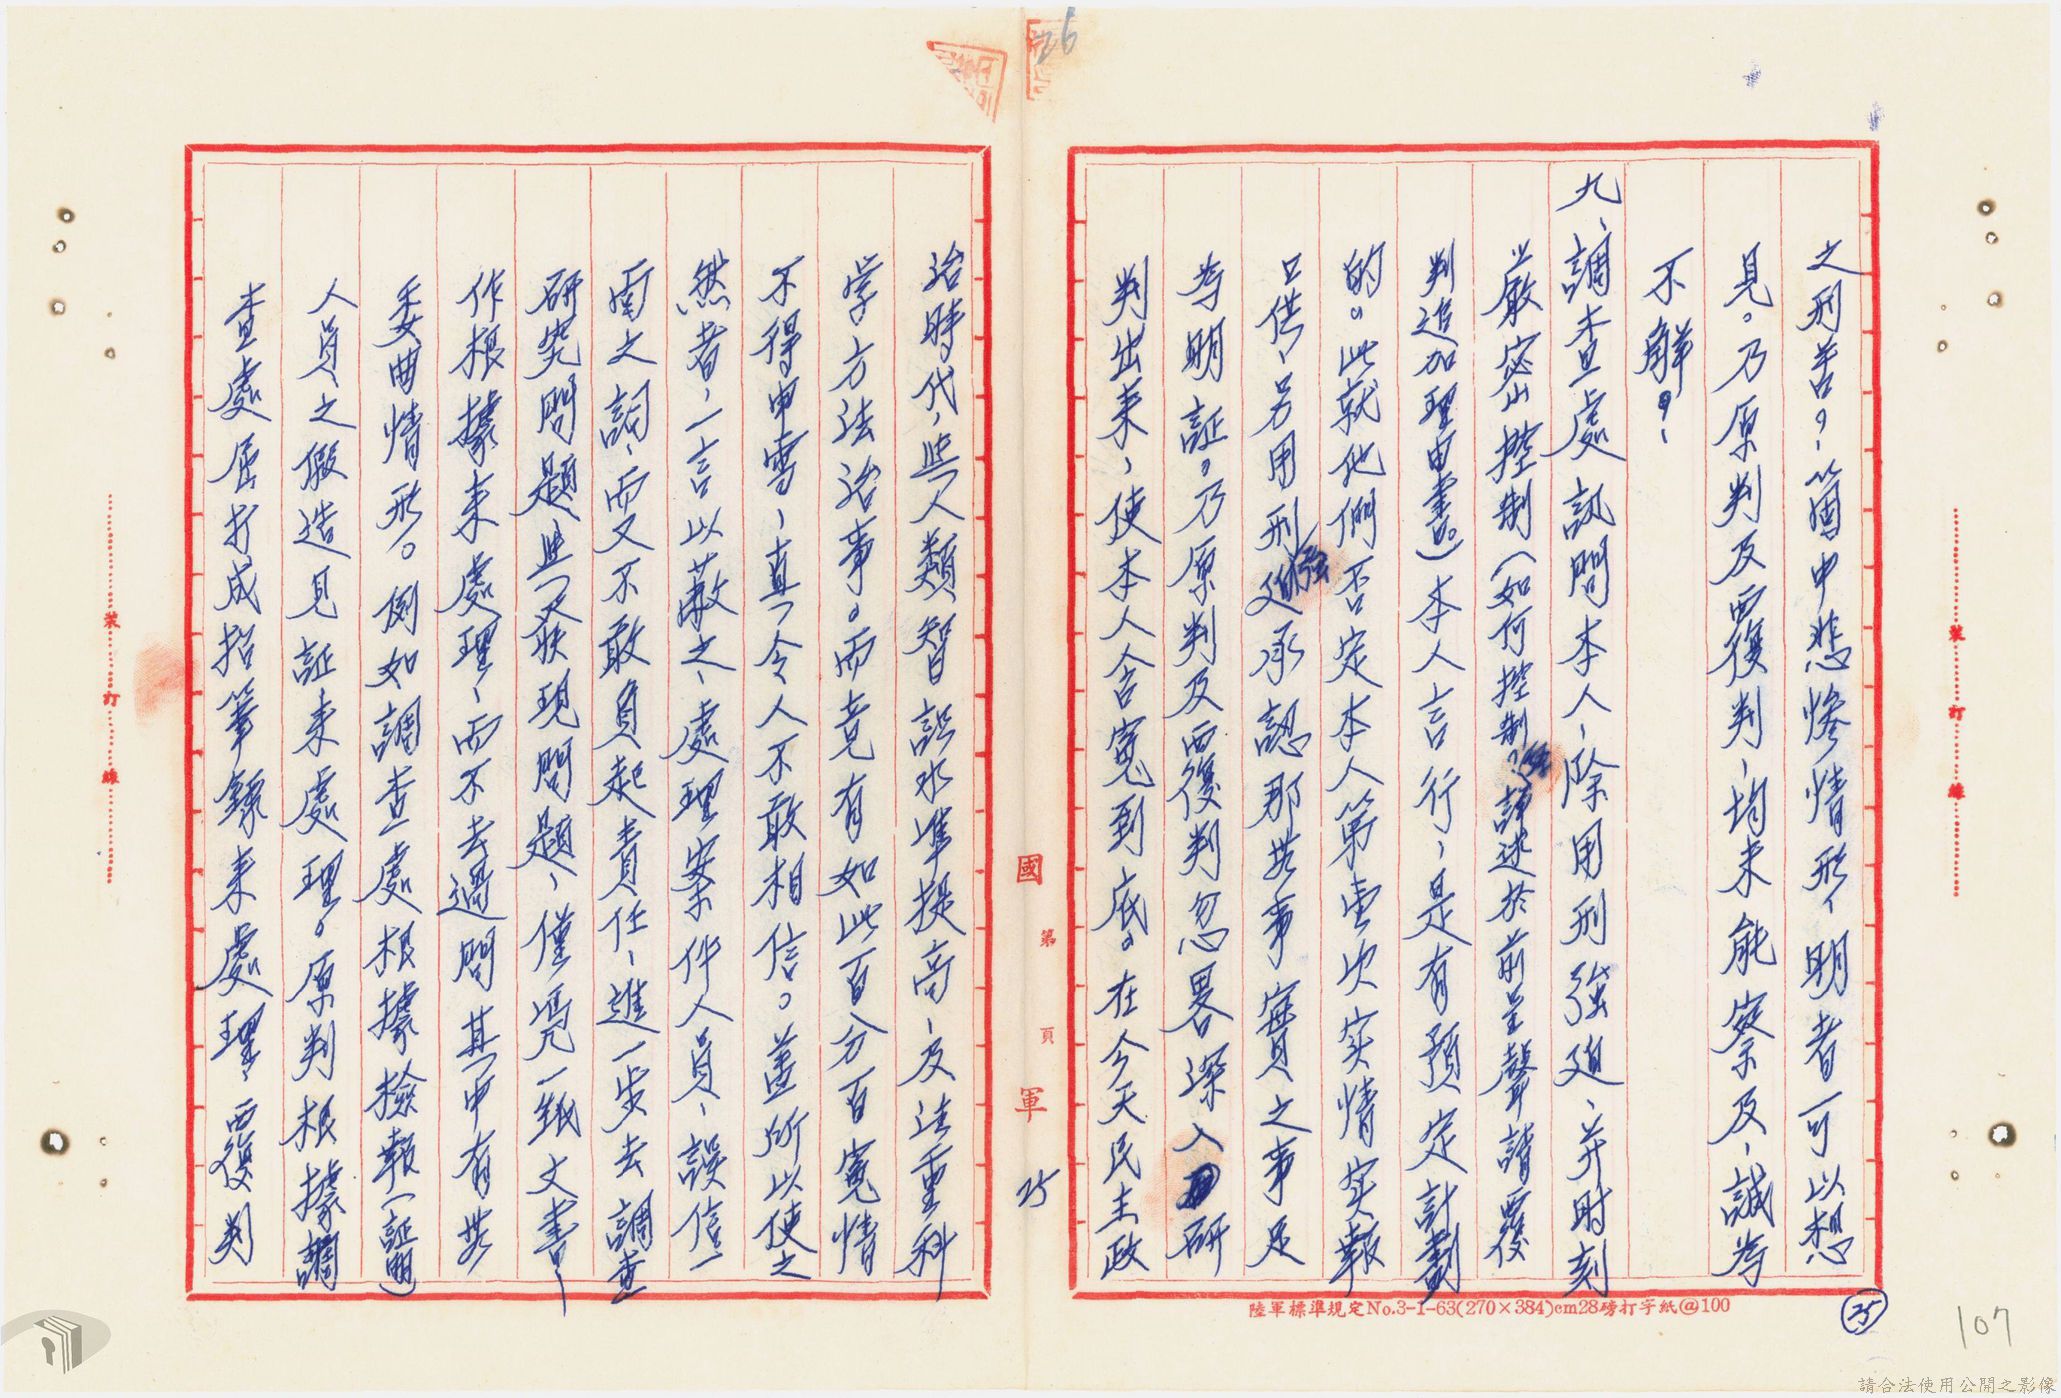 之刑苦。箇中悲慘情形、明者一可以想
見。乃原判及覆判、均未能察及、誠為
不解。
九、調查處訊問本人、除用刑強迫、并時刻
嚴密控制(如何控制？經詳述於前呈聲請覆
判追加理由書。)本人言行、是有預定計劃
的。此就他們否定本人第壹次实情实報
口供、另用刑強迫承認那些事實之事足
為明証。乃原判及覆判忽畧深入研
判出來、使本人含冤到底。在今天民主政
治時代、與人類智識水準提高、及注重科
学方法治事。而竟有如此百分百冤情
不得申雪、真令人不敢相信。蓋所以使之
然者、一言以蔽之、處理案件人員、誤信一
面之詞、而又不敢負起責任、進一步去調查
研究問題與发現問題、僅憑一紙文書、
作根據來處理、而不去過問其中有些
委曲情形。例如調查處根據檢報(証明)
人員之假造見証來處理。原判根據調
查處屈打成招筆錄來處理、覆判
國
軍
第
頁
25
25
26
107
裝
訂
線
裝
訂
線
陸軍標準規定No.3-1-63(270×384)cm28磅打字紙@100
請合法使用公開之影像